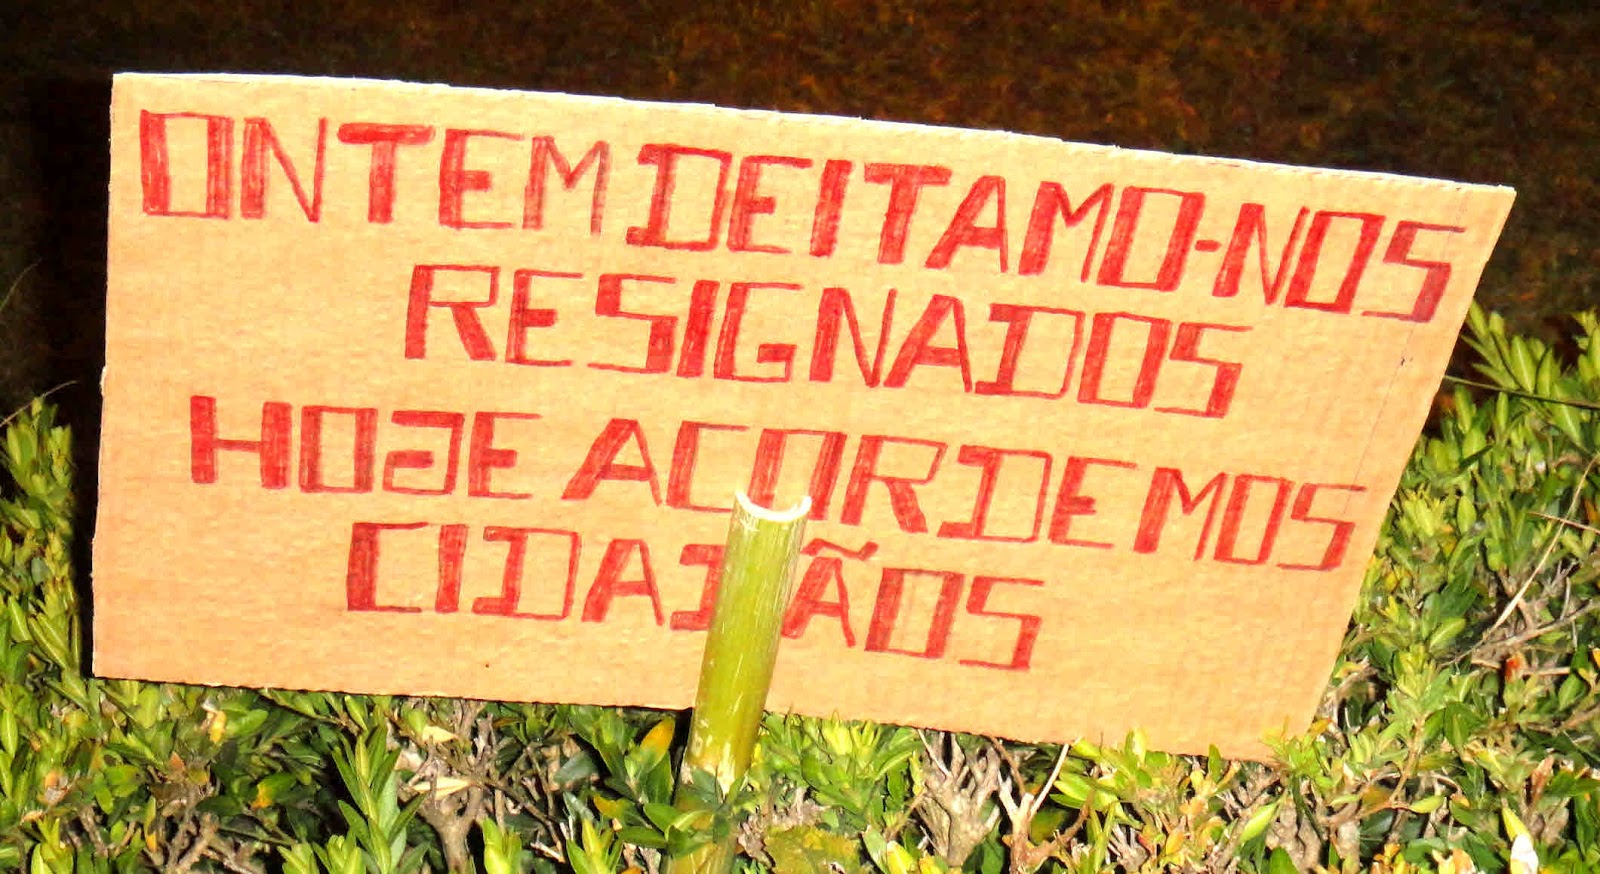 ONTEM DEITAMO-NOS
RESIGNADOS
HOJE ACORDEMOS
CIDADÃOS